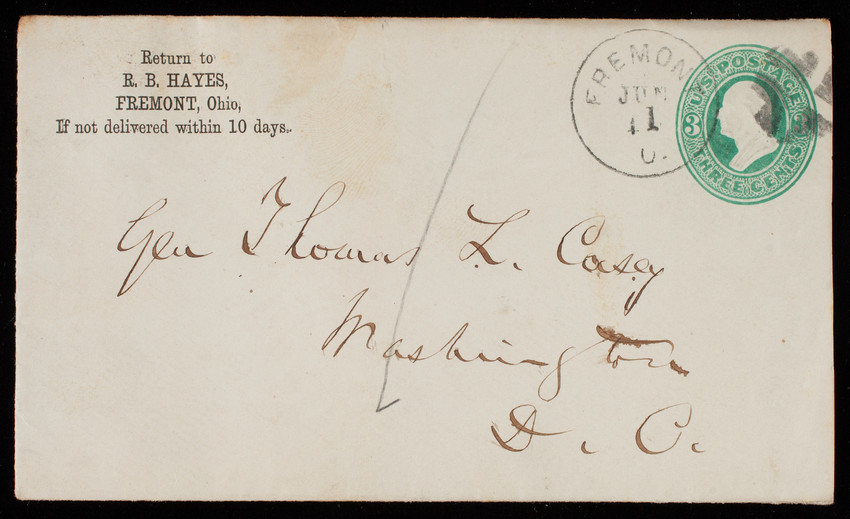 Return to
R. B. HAYES,
FREMONT, Ohio,
If not delivered within 10 days.
FREMONT
JUN
1
O.
U.S. POSTAGE
3 3
THREE CENTS
Gen Thomas L. Casey
Washington
D. C.